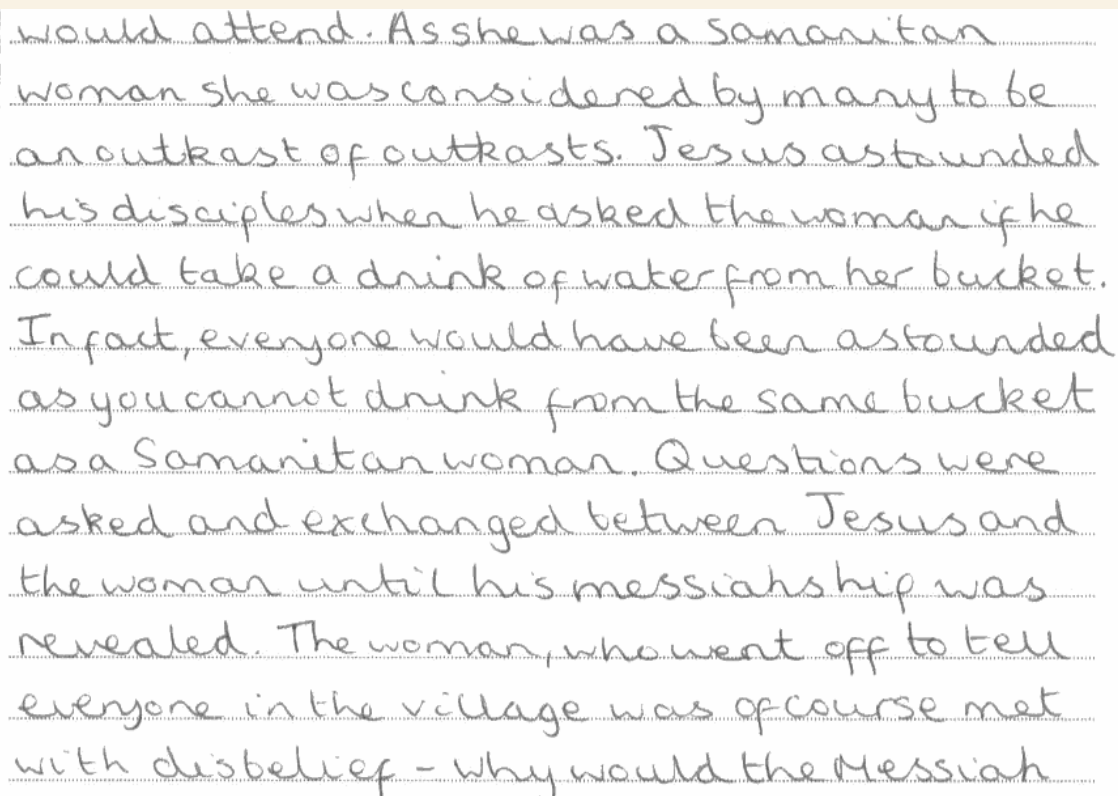 would attend. As she was a Samaritan
woman she was considered by many to be
an outkast of outkasts. Jesus astounded
his disciples when he asked the woman if he
could take a drink of water from her bucket.
In fact, everyone would have been astounded
as you cannot drink from the same bucket
as a Samaritan woman. Questions were
asked and exchanged between Jesus and
the woman until his messiahship was
revealed. The woman, who went off to tell
everyone in the village was of course met
with disbelief - why would the Messiah